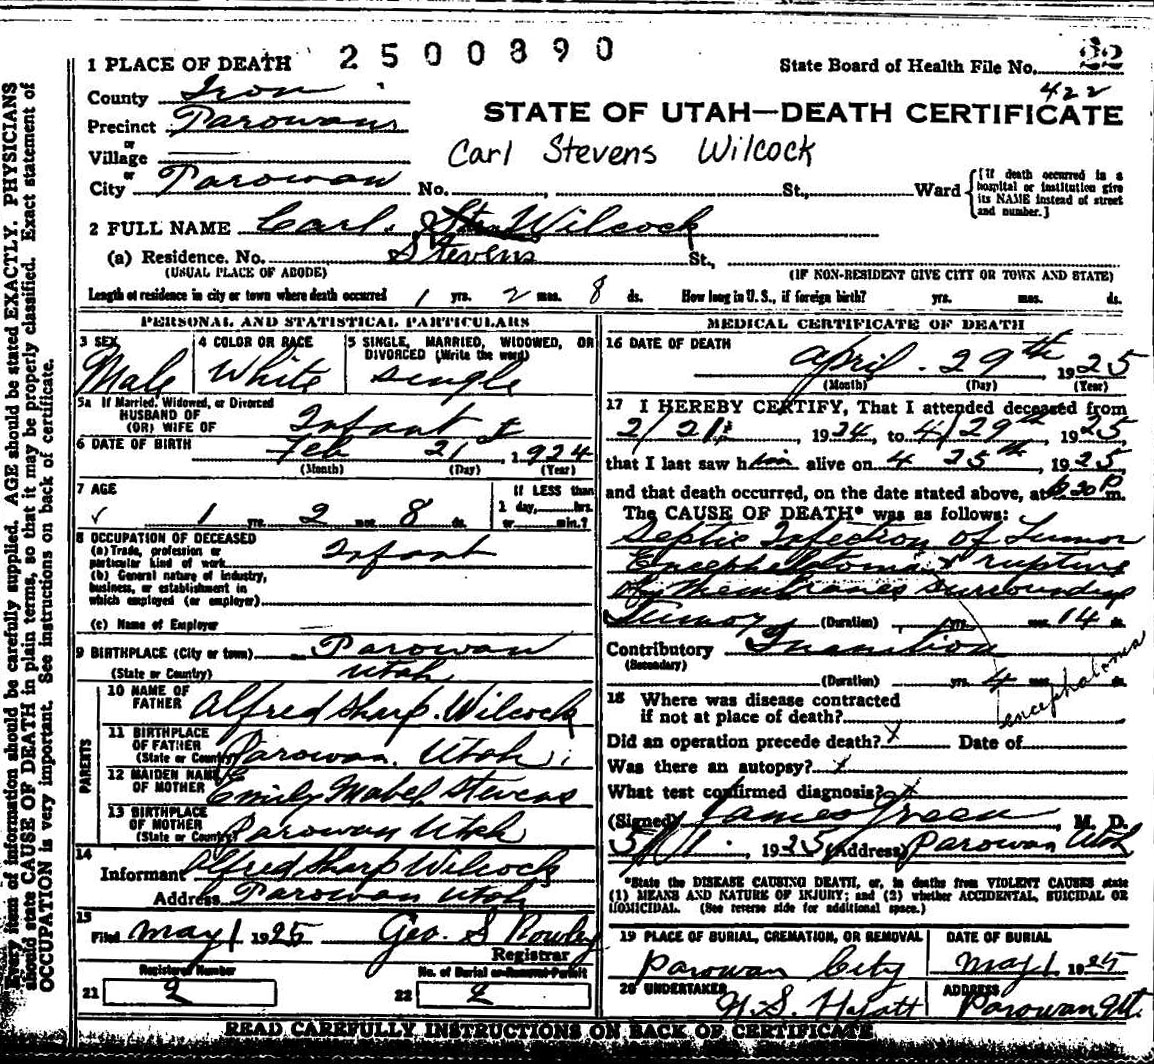 1 PLACE OF DEATH 2500890
State Board of Health File No. 22
422
County Iron
STATE OF UTAH—DEATH CERTIFICATE
Precinct Parowan
or
Village
Carl Stevens Wilcock
or
City Parowan No. , St., Ward
[If death occurred in a hospital or institution give its NAME instead of street and number.]
2 FULL NAME Carl Wilcock
Stevens
(a) Residence. No. St.,
(USUAL PLACE OF ABODE) (IF NON-RESIDENT GIVE CITY OR TOWN AND STATE)
Length of residence in city or town where death occurred 1 yrs. 2 mos. 8 ds. How long in U. S., if foreign birth? yrs. mos. ds.
PERSONAL AND STATISTICAL PARTICULARS
3 SEX Male
4 COLOR OR RACE White
5 SINGLE, MARRIED, WIDOWED, OR DIVORCED (Write the word) Single
5a If Married, Widowed, or Divorced
HUSBAND OF
(OR) WIFE OF Infant
6 DATE OF BIRTH Feb 21 1924
(Month) (Day) (Year)
7 AGE 1 yrs. 2 mos. 8 ds.
If LESS than 1 day, hrs. or min.?
8 OCCUPATION OF DECEASED
(a) Trade, profession or particular kind of work Infant
(b) General nature of industry, business, or establishment in which employed (or employer)
(c) Name of Employer
9 BIRTHPLACE (City or town) Parowan
(State or Country) Utah
PARENTS
10 NAME OF FATHER Alfred Sharp Wilcock
11 BIRTHPLACE OF FATHER (State or Country) Parowan, Utah
12 MAIDEN NAME OF MOTHER Emily Mabel Stevens
13 BIRTHPLACE OF MOTHER (State or Country) Parowan Utah
14
Informant Alfred Sharp Wilcock
Address Parowan Utah
15
Filed May 1 1925 Geo. S Rowley
Registrar
Registered Number No. of Burial or Removal Permit
21 2 22 2
MEDICAL CERTIFICATE OF DEATH
16 DATE OF DEATH
April 29th 1925
(Month) (Day) (Year)
17 I HEREBY CERTIFY, That I attended deceased from
2/21st, 1924, to 4/29th, 1925
that I last saw him alive on 4 25th, 1925,
and that death occurred, on the date stated above, at 30 P m.
The CAUSE OF DEATH* was as follows:
Septic Infection of Tumor
rupture
of Membranes surrounding
Tumor (Duration) yrs. mos. 14 ds.
Contributory Inanition
(Secondary)
(Duration) yrs. 4 mos. ds.
encephaloma
18 Where was disease contracted
if not at place of death?
Did an operation precede death? X Date of
Was there an autopsy? x
What test confirmed diagnosis?
(Signed) James Green, M. D.
5/1. 1925 (Address) Parowan Utah
*State the DISEASE CAUSING DEATH, or, in deaths from VIOLENT CAUSES state
(1) MEANS AND NATURE OF INJURY; and (2) whether ACCIDENTAL, SUICIDAL OR
HOMICIDAL. (See reverse side for additional space.)
19 PLACE OF BURIAL, CREMATION, OR REMOVAL DATE OF BURIAL
Parowan City May 1 1925
20 UNDERTAKER ADDRESS
Parowan Ut.
READ CAREFULLY INSTRUCTIONS ON BACK OF CERTIFICATE
Every item of information should be carefully supplied. AGE should be stated EXACTLY. PHYSICIANS
should state CAUSE OF DEATH in plain terms, so that it may be properly classified. Exact statement of
OCCUPATION is very important. See instructions on back of certificate.